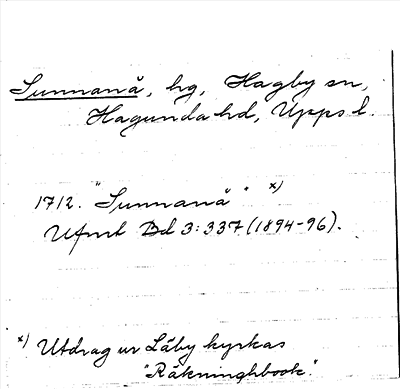 Sunnanå, hg, Hagby sn,
Hagunda hd, Upps l.
1712. "Sunnanå" x)
Ufmt Bd 3:337 (1894-96).
x) Utdrag ur Låby kyrkas
"Räkninghbook".